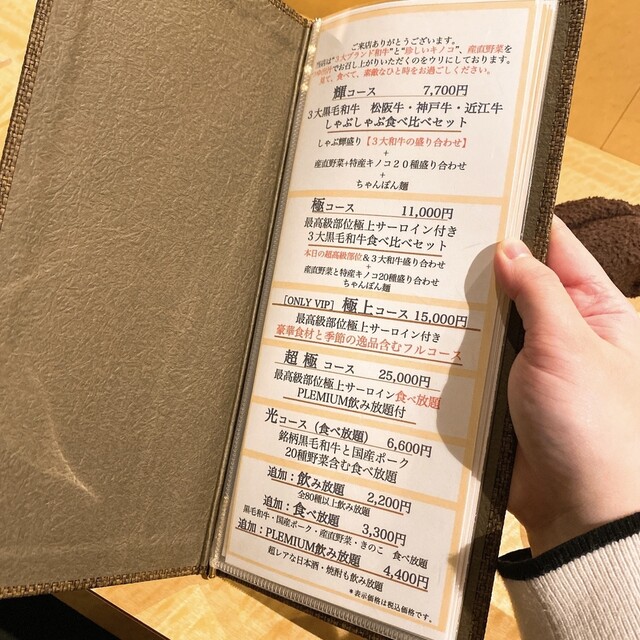 ご来店ありがとうございます。
当店は"３大ブランド和牛"と"珍しいキノコ"、産直野菜を
でお召し上がりいただくのをウリにしております。
見て、食べて、素敵なひと時をお過ごしください。
輝コース 7,700円
３大黒毛和牛 松阪牛・神戸牛・近江牛
しゃぶしゃぶ食べ比べセット
しゃぶ輝盛り【３大和牛の盛り合わせ】
+
産直野菜+特産キノコ２０種盛り合わせ
+
ちゃんぽん麺
極コース 11,000円
最高級部位極上サーロイン付き
３大黒毛和牛食べ比べセット
本日の超高級部位＆３大和牛盛り合わせ
+
産直野菜と特産キノコ20種盛り合わせ
ちゃんぽん麺
[ONLY VIP] 極上コース 15,000円
最高級部位極上サーロイン付き
豪華食材と季節の逸品含むフルコース
超極コース 25,000円
最高級部位極上サーロイン食べ放題
PLEMIUM飲み放題付
光コース（食べ放題） 6,600円
銘柄黒毛和牛と国産ポーク
20種野菜含む食べ放題
追加：飲み放題 2,200円
全80種以上飲み放題
追加：食べ放題 3,300円
黒毛和牛・国産ポーク・産直野菜・きのこ 食べ放題
追加：PLEMIUM飲み放題 4,400円
超レアな日本酒・焼酎も飲み放題
＊表示価格は税込価格です。